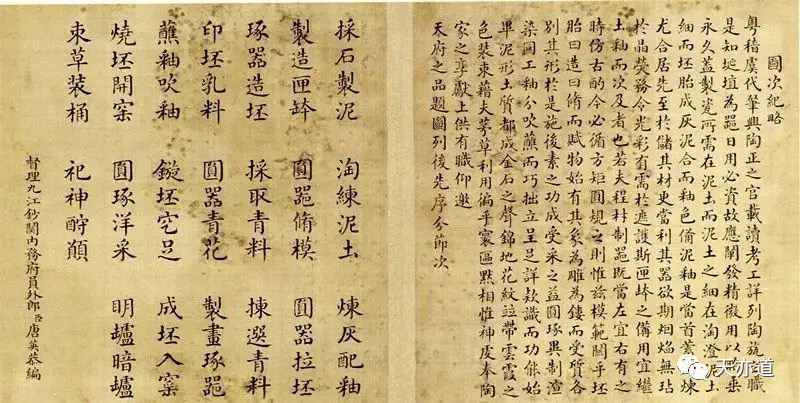 圖次紀略
粵稽虞代肇興陶正之官載讀考工詳列陶旊之職
是知埏埴為噐日用必資故應闡發精微用以垂
永久蓋製瓷所需在泥土而泥土之細在淘澄泥土
細而坯胎成灰泥合而釉色備泥釉是當首煉
尤合居先至於儲其材更當利其噐欲期烟焰無玷
於晶熒務令光彩有需於遮護斯匣缽之備用宜繼
土釉而次及者也若夫程材制噐既當左宜右有之
時仿古酌今必循方矩圓規之則惟茲模範關乎坯
胎曰造曰脩而賦物始有其象為雕為鏤而受質各
別其形於是施後素之功成受采之益圓琢異制渲
染同工釉分吹蘸而巧拙立呈足詳款識而功能始
畢泥形土質都成金石之聲錦地花紋竝帶雲霞之
色裝束藉夫茅草利用徧乎寰區黙相惟神虔奉陶
家之享獻上供有職仰邀
天府之品題圖列後先序分節次
採石製泥 淘練泥土 煉灰配釉
製造匣缽 圓噐脩模 圓器拉坯
琢器造坯 採取青料 揀選青料
印坯乳料 圓器青花 製畫琢噐
蘸釉吹釉 鏇坯窊足 成坯入窯
燒坯開窯 圓琢洋采 明爐暗爐
束草裝桶 祀神酧願
督理九江鈔關內務府員外郎臣唐英恭編
天亦道